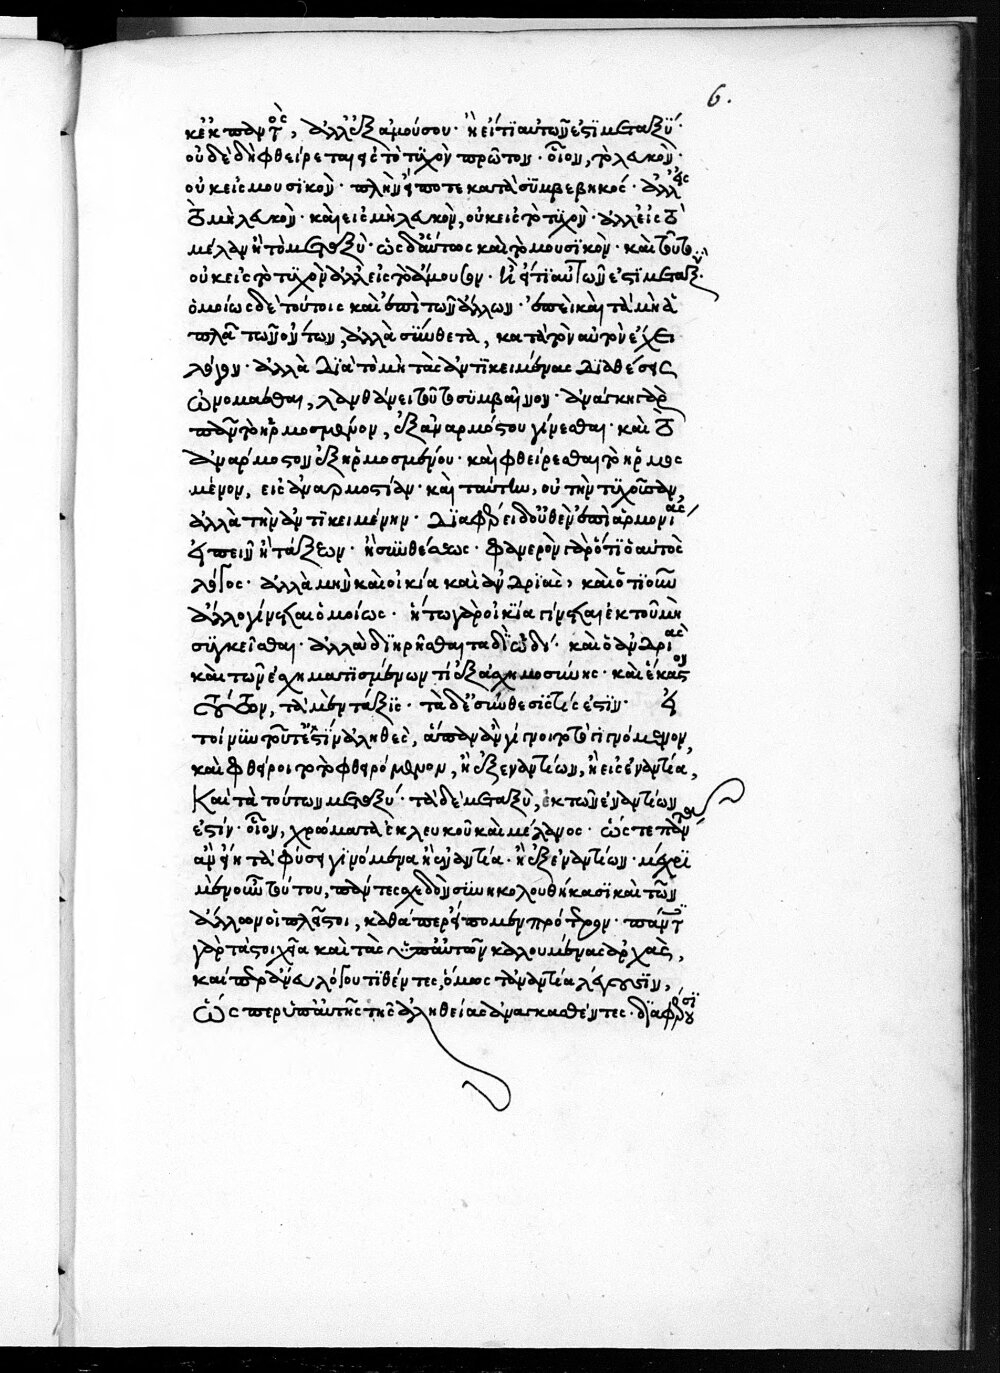 6.
κ ἐκ παντός, ἀλλ' ἐξ ἀμούσου· ἢ εἴ τι αὐτῶν ἐστὶ μεταξύ·
οὐδὲ δὴ φθείρεται εἰς τὸ τυχὸν πρῶτον· οἷον, τὸ λευκὸν·
οὐκ εἰς μουσικὸν· πλὴν εἴ ποτε κατὰ συμβεβηκός· ἀλλ' εἰς
τὸ μὴ λευκὸν· καὶ εἰς μὴ λευκὸν, οὐκ εἰς τὸ τυχὸν· ἀλλ' εἰς τὸ
μέλαν ἢ τὸ μεταξὺ· ὡς δ' αὕτως καὶ τὸ μουσικὸν· καὶ τοῦτο
οὐκ εἰς τὸ τυχὸν ἀλλ' εἰς τὸ ἄμουσον· ἢ εἴ τι αὐτῶν ἐστὶ μεταξύ·
ὁμοίως δὲ τούτοις καὶ ἐπὶ τῶν ἄλλων· ἐπεὶ καὶ τὰ μὴ ἁ
πλᾶ τῶν ὄντων, ἀλλὰ σύνθετα, κατὰ τὸν αὐτὸν ἔχει
λόγον· ἀλλὰ διὰ τὸ μὴ τὰς ἀντικειμένας διαθέσεις
ὠνομάσθαι, λανθάνει τοῦτο συμβαῖνον· ἀνάγκη γὰρ
πᾶν τὸ ἡρμοσμένον, ἐξ ἀναρμόστου γίνεσθαι· καὶ τὸ
ἀνάρμοστον ἐξ ἡρμοσμένου· καὶ φθείρεσθαι τὸ ἡρμοσ
μένον, εἰς ἀναρμοστίαν· καὶ ταύτην, οὐ τὴν τυχοῦσαν,
ἀλλὰ τὴν ἀντικειμένην· διαφέρει δ' οὐθὲν ἐπὶ ἁρμονίας
εἰπεῖν ἢ τάξεων· ἢ συνθέσεως· φανερὸν γὰρ ὅτι ὁ αὐτὸς
λόγος· ἀλλὰ μὴν καὶ οἰκία καὶ ἀνδριὰς, καὶ ὅτι οὖν
ἄλλο γίνεται ὁμοίως· ἥ τε γὰρ οἰκία γίνεται ἐκ τοῦ μὴ
συγκεῖσθαι· ἀλλὰ διῃρῆσθαι ταδὶ ὡδί· καὶ ὁ ἀνδριὰς
καὶ τῶν ἐσχηματισμένων τι ἐξ ἀσχημοσύνης· καὶ ἕκαστον
τούτων, τὰ μὲν τάξις· τὰ δὲ σύνθεσίς τίς ἐστιν· εἰ
τοίνυν τοῦτ' ἔστιν ἀληθὲς, ἅπαν ἂν γίγνοιτο τὸ γιγνόμενον,
καὶ φθείροιτο τὸ φθειρόμενον, ἢ ἐξ ἐναντίων, ἢ εἰς ἐναντία,
καὶ τὰ τούτων μεταξύ· τὰ δὲ μεταξὺ, ἐκ τῶν ἐναντίων
ἐστίν· οἷον, χρώματα ἐκ λευκοῦ καὶ μέλανος· ὥστε πάντα
ἂν εἴη τὰ φύσει γινόμενα ἢ ἐναντία· ἢ ἐξ ἐναντίων· μέχρι
μὲν οὖν τούτου, πάντες σχεδὸν συνηκολουθήκασι καὶ τῶν
ἄλλων οἱ πλεῖστοι, καθάπερ εἴπομεν πρότερον· πάντες
γὰρ τὰ στοιχεῖα καὶ τὰς ὑπ' αὐτῶν καλουμένας ἀρχὰς,
καίπερ ἄνευ λόγου τιθέντες, ὅμως τἀναντία λέγουσιν,
ὥσπερ ὑπ' αὐτῆς τῆς ἀληθείας ἀναγκασθέντες· διαφέρουσι